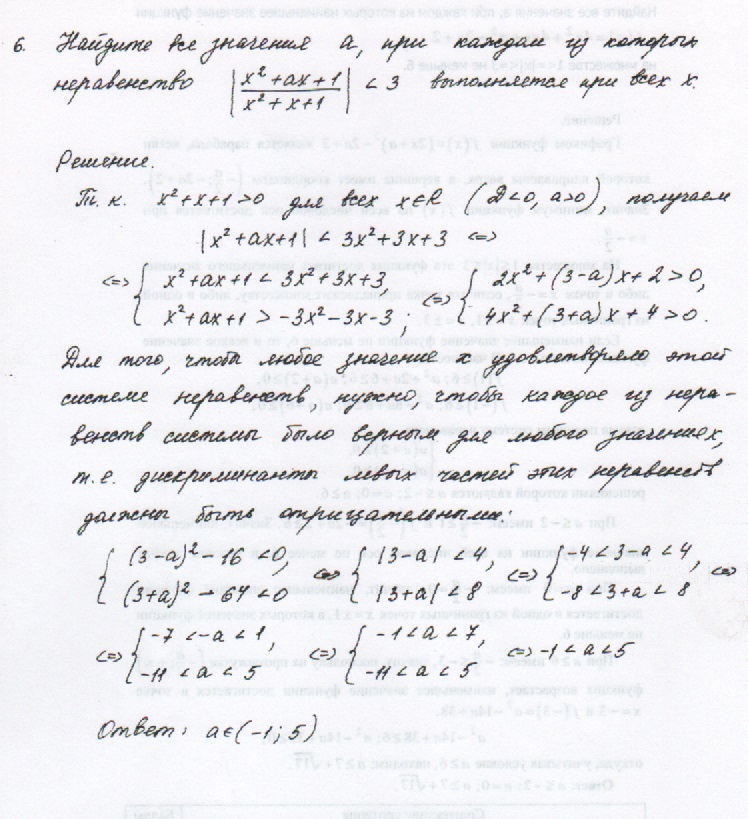 6. Найдите все значения a, при каждом из которых
неравенство |(x²+ax+1)/(x²+x+1)| < 3 выполняется при всех x.
Решение.
Т.к. x²+x+1>0 для всех x∈R (D<0, a>0), получаем
|x²+ax+1| < 3x²+3x+3 <=>
<=> { x²+ax+1 < 3x²+3x+3, x²+ax+1 > -3x²-3x-3; <=> { 2x²+(3-a)x+2>0, 4x²+(3+a)x+4>0.
Для того, чтобы любое значение x удовлетворяло этой
системе неравенств, нужно, чтобы каждое из нера-
венств системы было верным для любого значения x,
т.е. дискриминанты левых частей этих неравенств
должны быть отрицательными:
{ (3-a)²-16<0, (3+a)²-64<0 <=> { |3-a|<4, |3+a|<8 <=> { -4<3-a<4, -8<3+a<8 <=>
<=> { -7<-a<1, -11<a<5 <=> { -1<a<7, -11<a<5 <=> -1<a<5
Ответ: a∈(-1; 5)